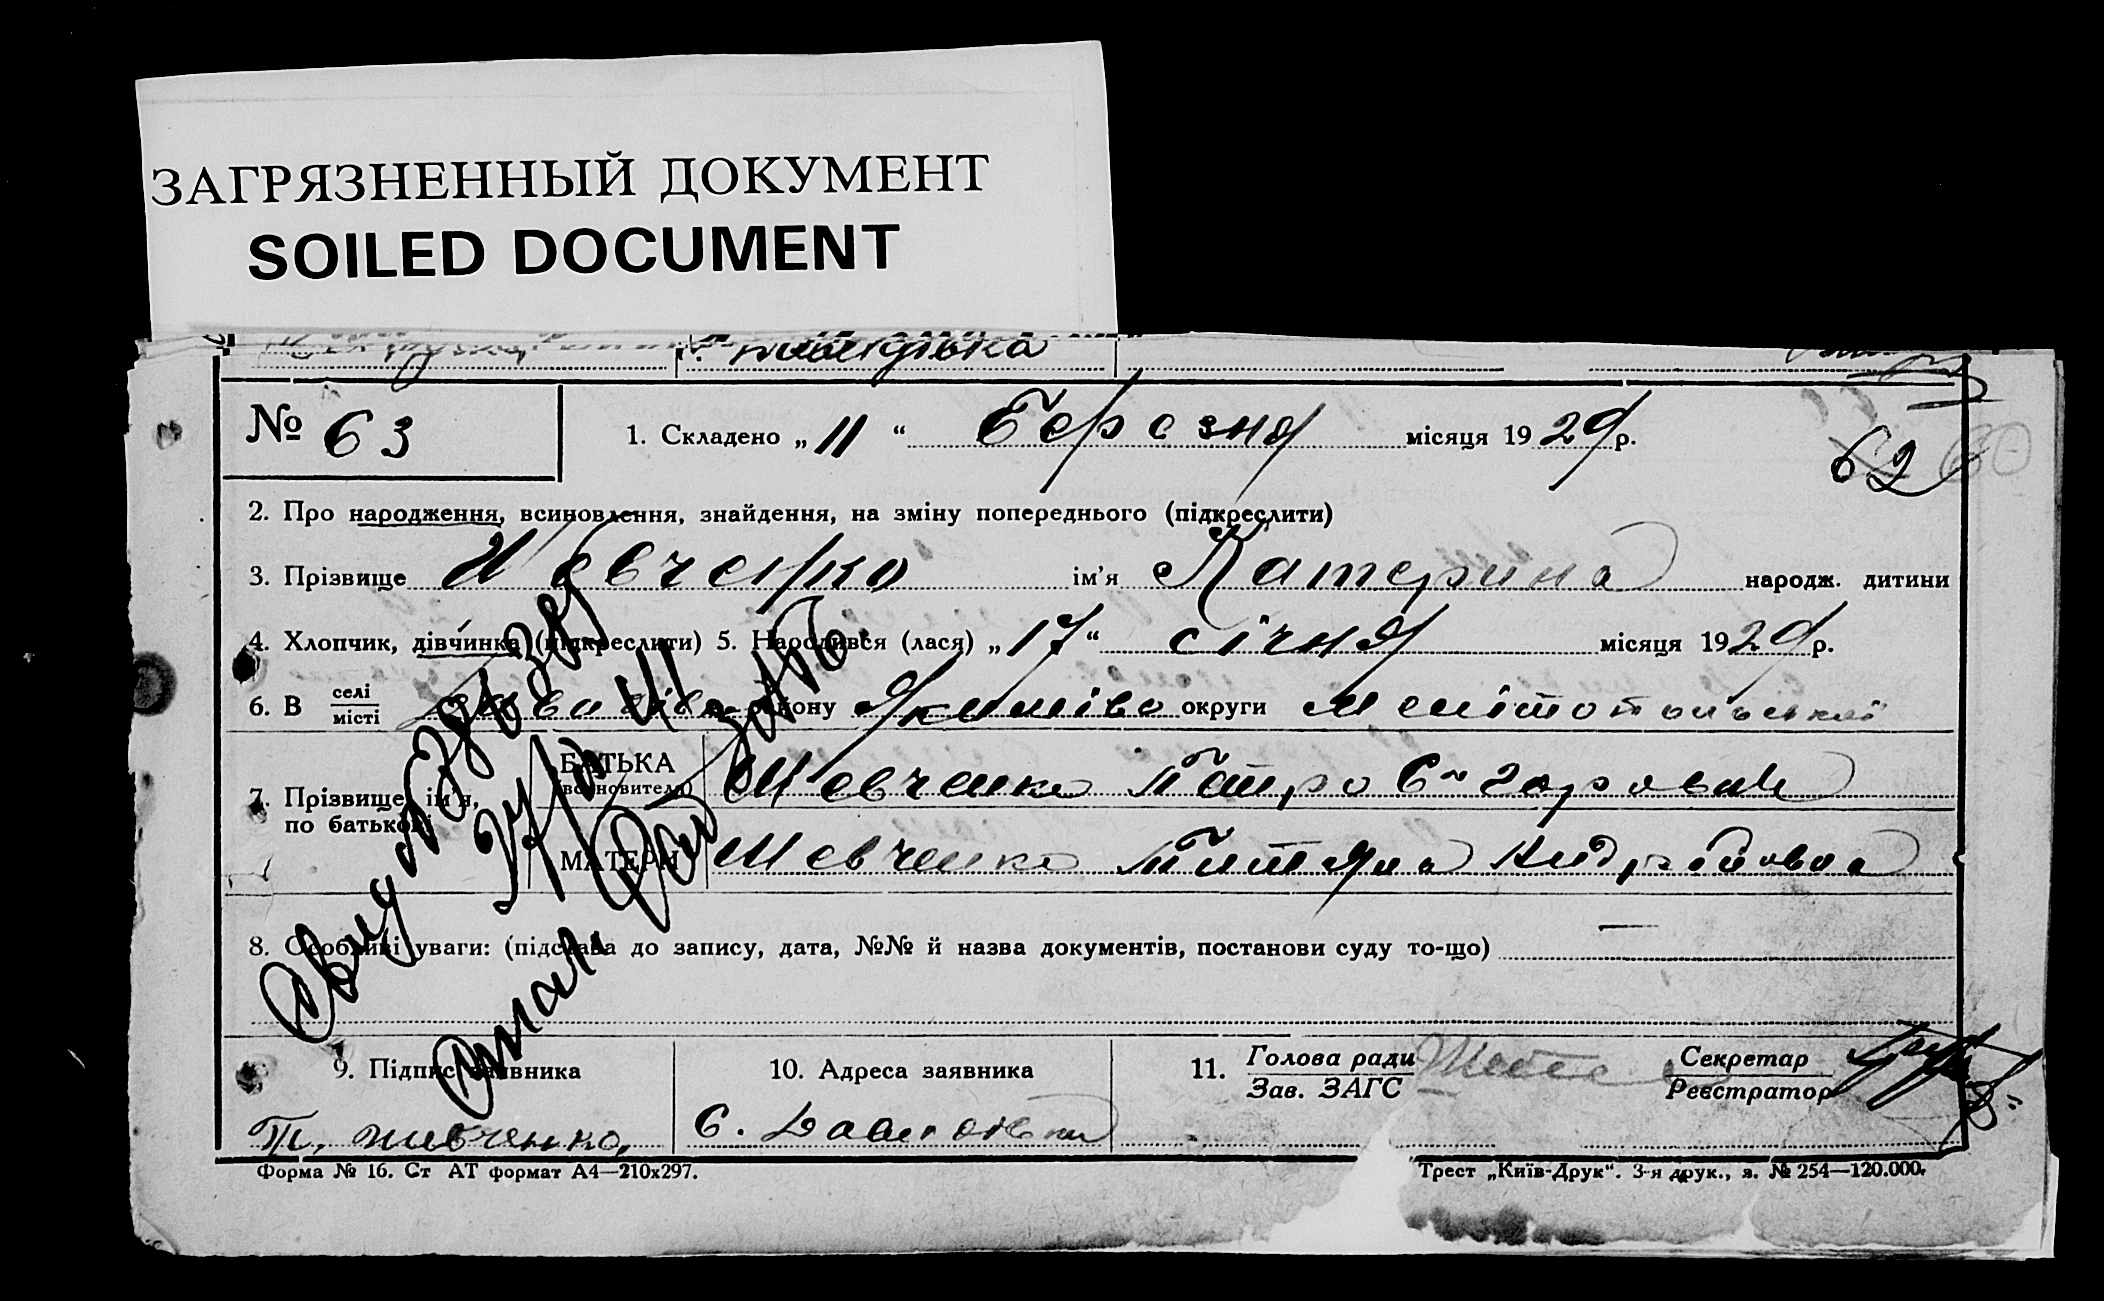 ЗАГРЯЗНЕННЫЙ ДОКУМЕНТ
SOILED DOCUMENT
№ 63
1. Складено „ 11 “ Березня місяця 1929 р.
62 60
2. Про народження, всиновлення, знайдення, на зміну попереднього (підкреслити)
3. Прізвище Шевченко ім'я Катерина народж. дитини
4. Хлопчик, дівчинка (підкреслити) 5. Народився (лася) „ 17 “ січня місяця 1929 р.
6. В селі/місті Давидівка району Якимівс округи Мелітопольської
7. Прізвище, ім'я, по батькові
БАТЬКА (всиновителя) Шевченко Петро Єгорович
МАТЕРИ Шевченко Тетяна Андріївна
8. Особливі уваги: (підстава до запису, дата, №№ й назва документів, постанови суду то-що) —
9. Підпис заявника
10. Адреса заявника
11. Голова ради/Зав. ЗАГС
Секретар/Реєстратор
П. Шевченко
С. Давидовка
Форма № 16. Ст АТ формат А4—210х297.
Трест „Київ-Друк“. 3-я друк., з. № 254—120.000.